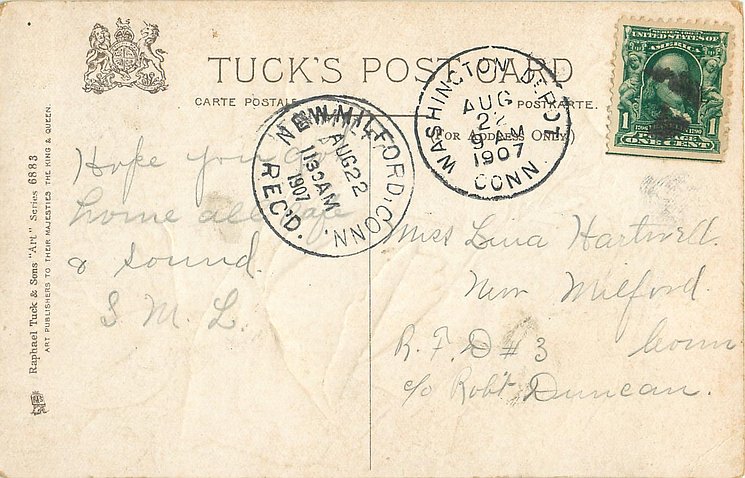 TUCK'S POST CARD
CARTE POSTALE.
POSTKARTE.
(FOR ADDRESS ONLY.)
NEW MILFORD, CONN.
AUG 22
1130AM
1907
REC'D.
WASHINGTON DEPOT
AUG
22
9 AM
1907
CONN
SERIES 1902
UNITED STATES OF
AMERICA
1 1
ONE CENT
Hope you got
home all safe
& sound.
S. M. L.
Miss Lina Hartwell.
New Milford.
R. F. D # 3 Conn
c/o Robt Duncan.
Raphael Tuck & Sons "Art" Series 6883
ART PUBLISHERS TO THEIR MAJESTIES THE KING & QUEEN.